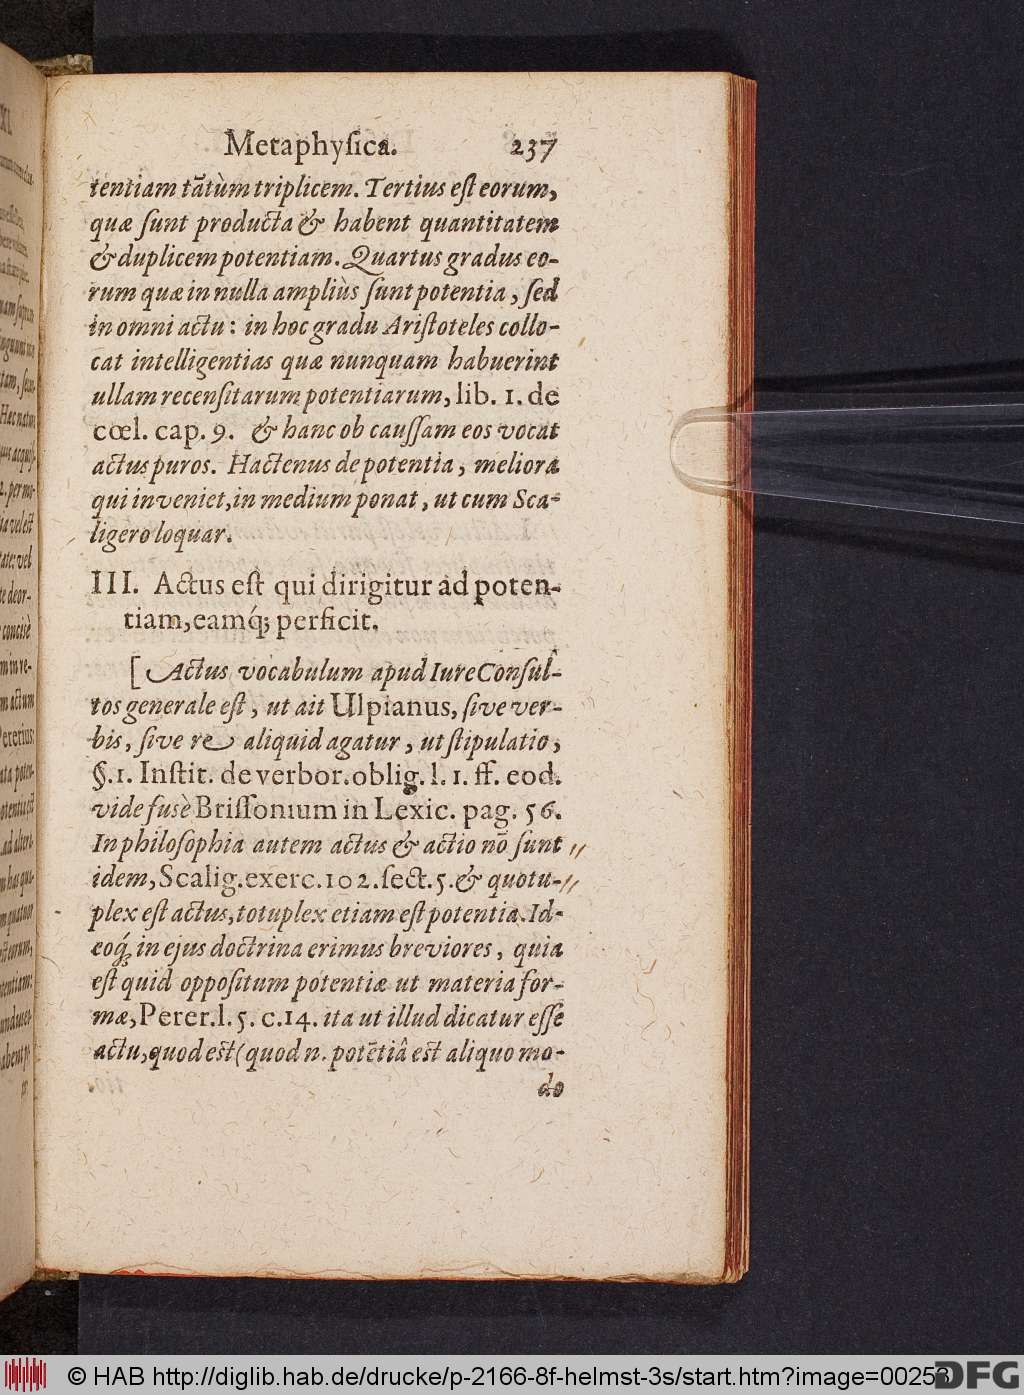 Metaphyſica. 237
tentiam tãtùm triplicem. Tertius eſt eorum,
quæ ſunt producta & habent quantitatem
& duplicem potentiam. Quartus gradus eo-
rum quæ in nulla ampliùs ſunt potentia, ſed
in omni actu: in hoc gradu Ariſtoteles collo-
cat intelligentias quæ nunquam habuerint
ullam recenſitarum potentiarum, lib. 1. de
cœl. cap. 9. & hanc ob cauſſam eos vocat
actus puros. Hactenus de potentia, meliora
qui inveniet, in medium ponat, ut cum Sca-
ligero loquar.
III. Actus eſt qui dirigitur ad poten-
tiam, eamq́; perficit.
[Actus vocabulum apud IureConſul-
tos generale eſt, ut ait Ulpianus, ſive ver-
bis, ſive re aliquid agatur, ut ſtipulatio,
§. 1. Inſtit. de verbor. oblig. l. 1. ff. eod.
vide fusè Briſſonium in Lexic. pag. 56.
In philoſophia autem actus & actio nõ ſunt
idem, Scalig. exerc. 102. ſect. 5. & quotu-
plex eſt actus, totuplex etiam eſt potentia. Id-
eoq́; in ejus doctrina erimus breviores, quia
eſt quid oppoſitum potentiæ ut materia for-
mæ, Perer. l. 5. c. 14. ita ut illud dicatur eſſe
actu, quod eſt (quod n. potẽtiâ eſt aliquo mo-
do
© HAB http://diglib.hab.de/drucke/p-2166-8f-helmst-3s/start.htm?image=00253
DFG